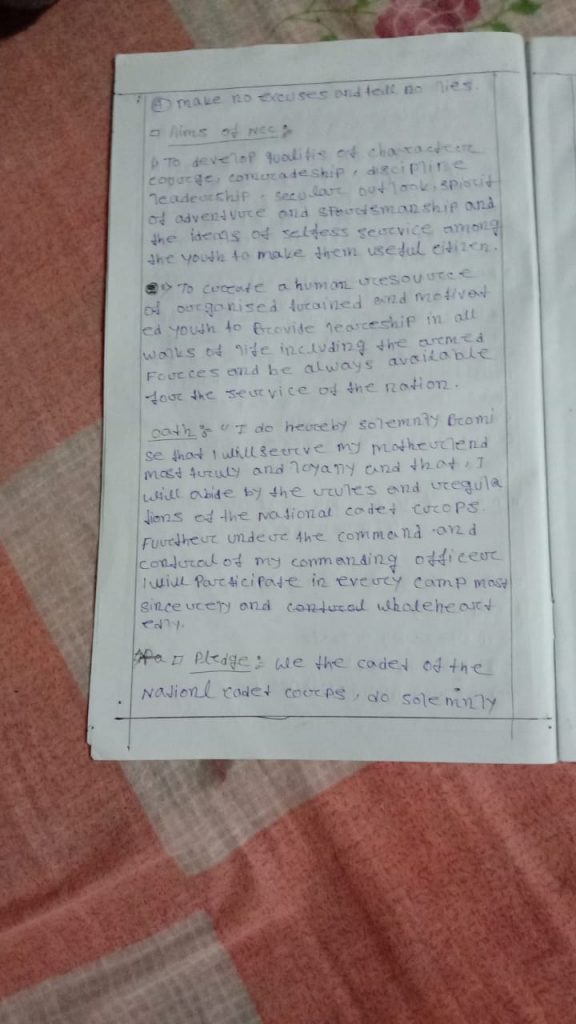 ④ make no excuses and tell no lies.
□ Aims of NCC :-
1) To develop qualitis of charactere
courge, comradeship, discipline
leadership, secular outlook, spirit
of adventure and sportsmanship and
the ideas of selfess service among
the youth to make them useful citizen.
2) To create a human resource
of organised trained and motivat
ed youth to Provide learceship in all
walks of life including the armed
Forces and be always available
for the service of the nation.
oath :- " I do hereby solemnly Promi
se that I will serve my motherlend
most truly and loyally and that, I
will abide by the rules and regula
tions of the National cadet corps.
Further under the command and
control of my conmanding officer
I will Participate in every camp most
sincerely and control wholeheart
edly.
□ Pledge :- We the cadet of the
Nationl cadet corps, do solemnly